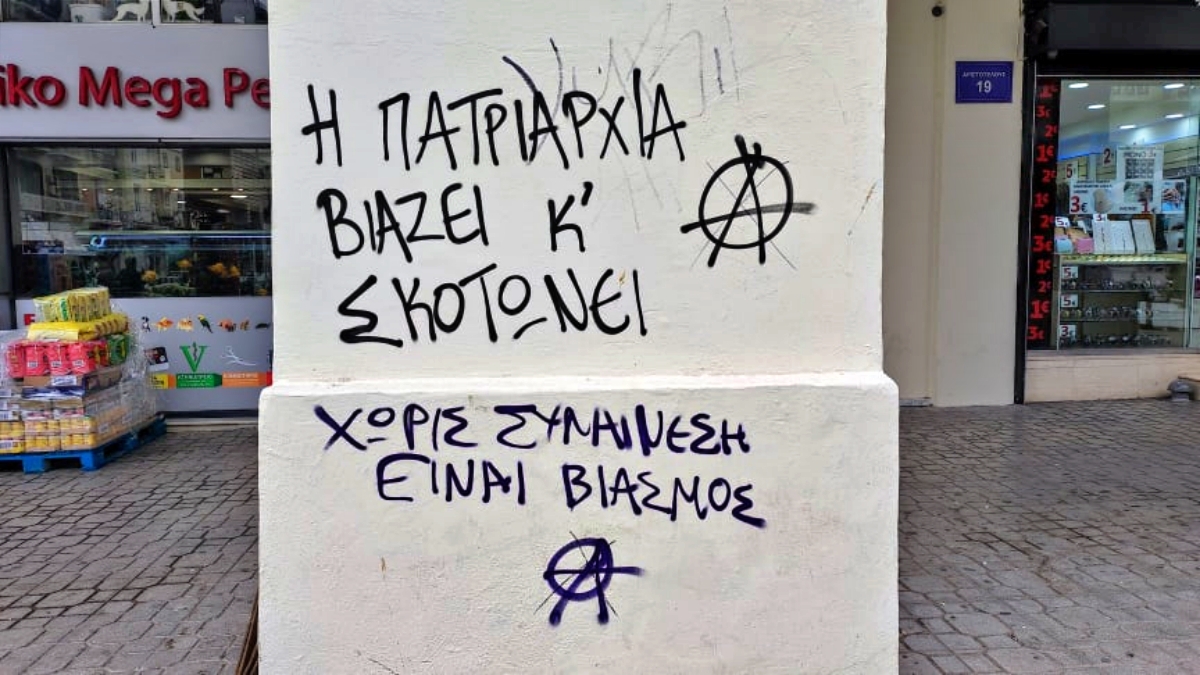 iko Mega Pe
Η ΠΑΤΡΙΑΡΧΙΑ
ΒΙΑΖΕΙ Κ'
ΣΚΟΤΩΝΕΙ
ΧΩΡΙΣ ΣΥΝΑΙΝΕΣΗ
ΕΙΝΑΙ ΒΙΑΣΜΟΣ
ΑΡΙΣΤΟΤΕΛΟΥΣ
19
1€
2€
1€
2€
1€
2€
3€
1€
2€
1€
3€
ΜΟΝΟ 3€
3€
1€
5€
5€
3€